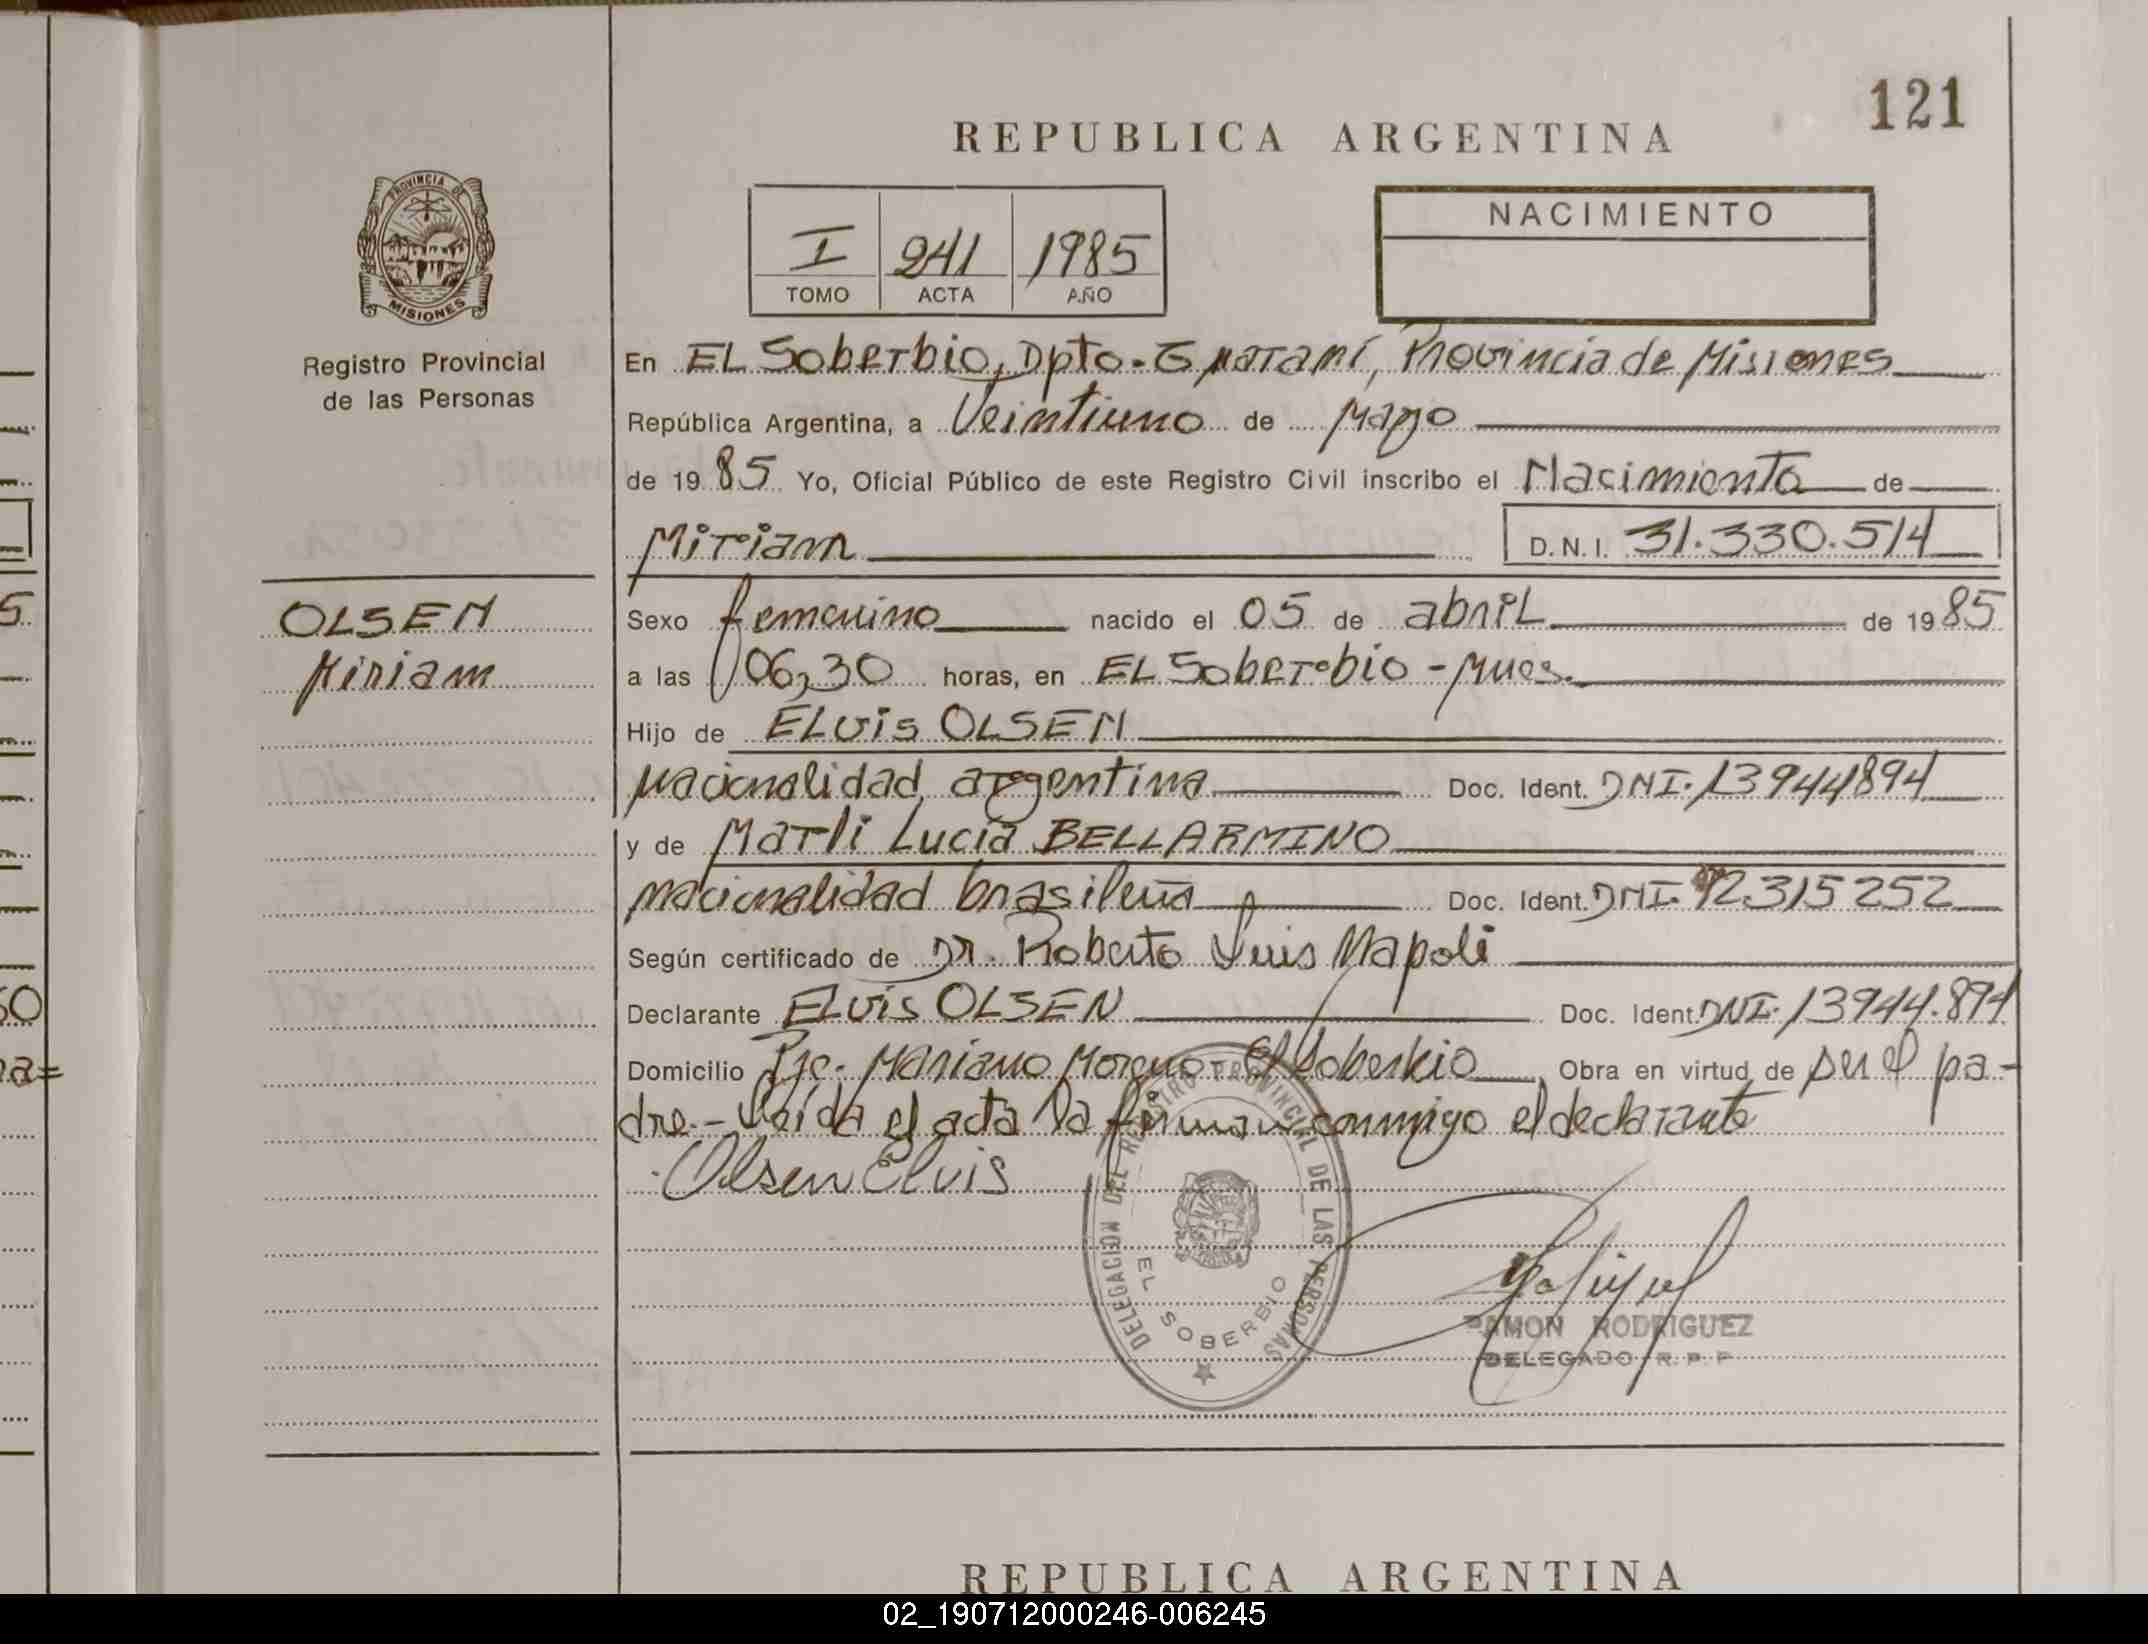 121
REPUBLICA ARGENTINA
PROVINCIA DE
MISIONES
Registro Provincial
de las Personas
I 241 1985
TOMO ACTA AÑO
NACIMIENTO
En EL Soberbio, Dpto-Guaraní, Provincia de Misiones
República Argentina, a Veintiuno de Mayo
de 1985 Yo, Oficial Público de este Registro Civil inscribo el Nacimiento de
Miriam D.N.I. 31.330.514
OLSEN
Miriam
Sexo femenino nacido el 05 de abril de 1985
a las 06,30 horas, en EL Soberbio - Mnes.
Hijo de ELvis OLSEN
nacionalidad argentina Doc. Ident. DNI. 13944894
y de Marli Lucía BELLARMINO
nacionalidad brasileña Doc. Ident. DNI. 92.315252
Según certificado de Dr. Roberto Luis Napoli
Declarante ELvis OLSEN Doc. Ident. DNI. 13944.894
Domicilio Pje. Mariano Moreno - El Soberbio Obra en virtud de ser el pa-
dre.- Leída el acta la firman conmigo el declarante
Olsen Elvis
DELEGACION DEL REGISTRO PROVINCIAL DE LAS PERSONAS
EL SOBERBIO
RAMON RODRIGUEZ
DELEGADO R. P. P
REPUBLICA ARGENTINA
02_190712000246-006245